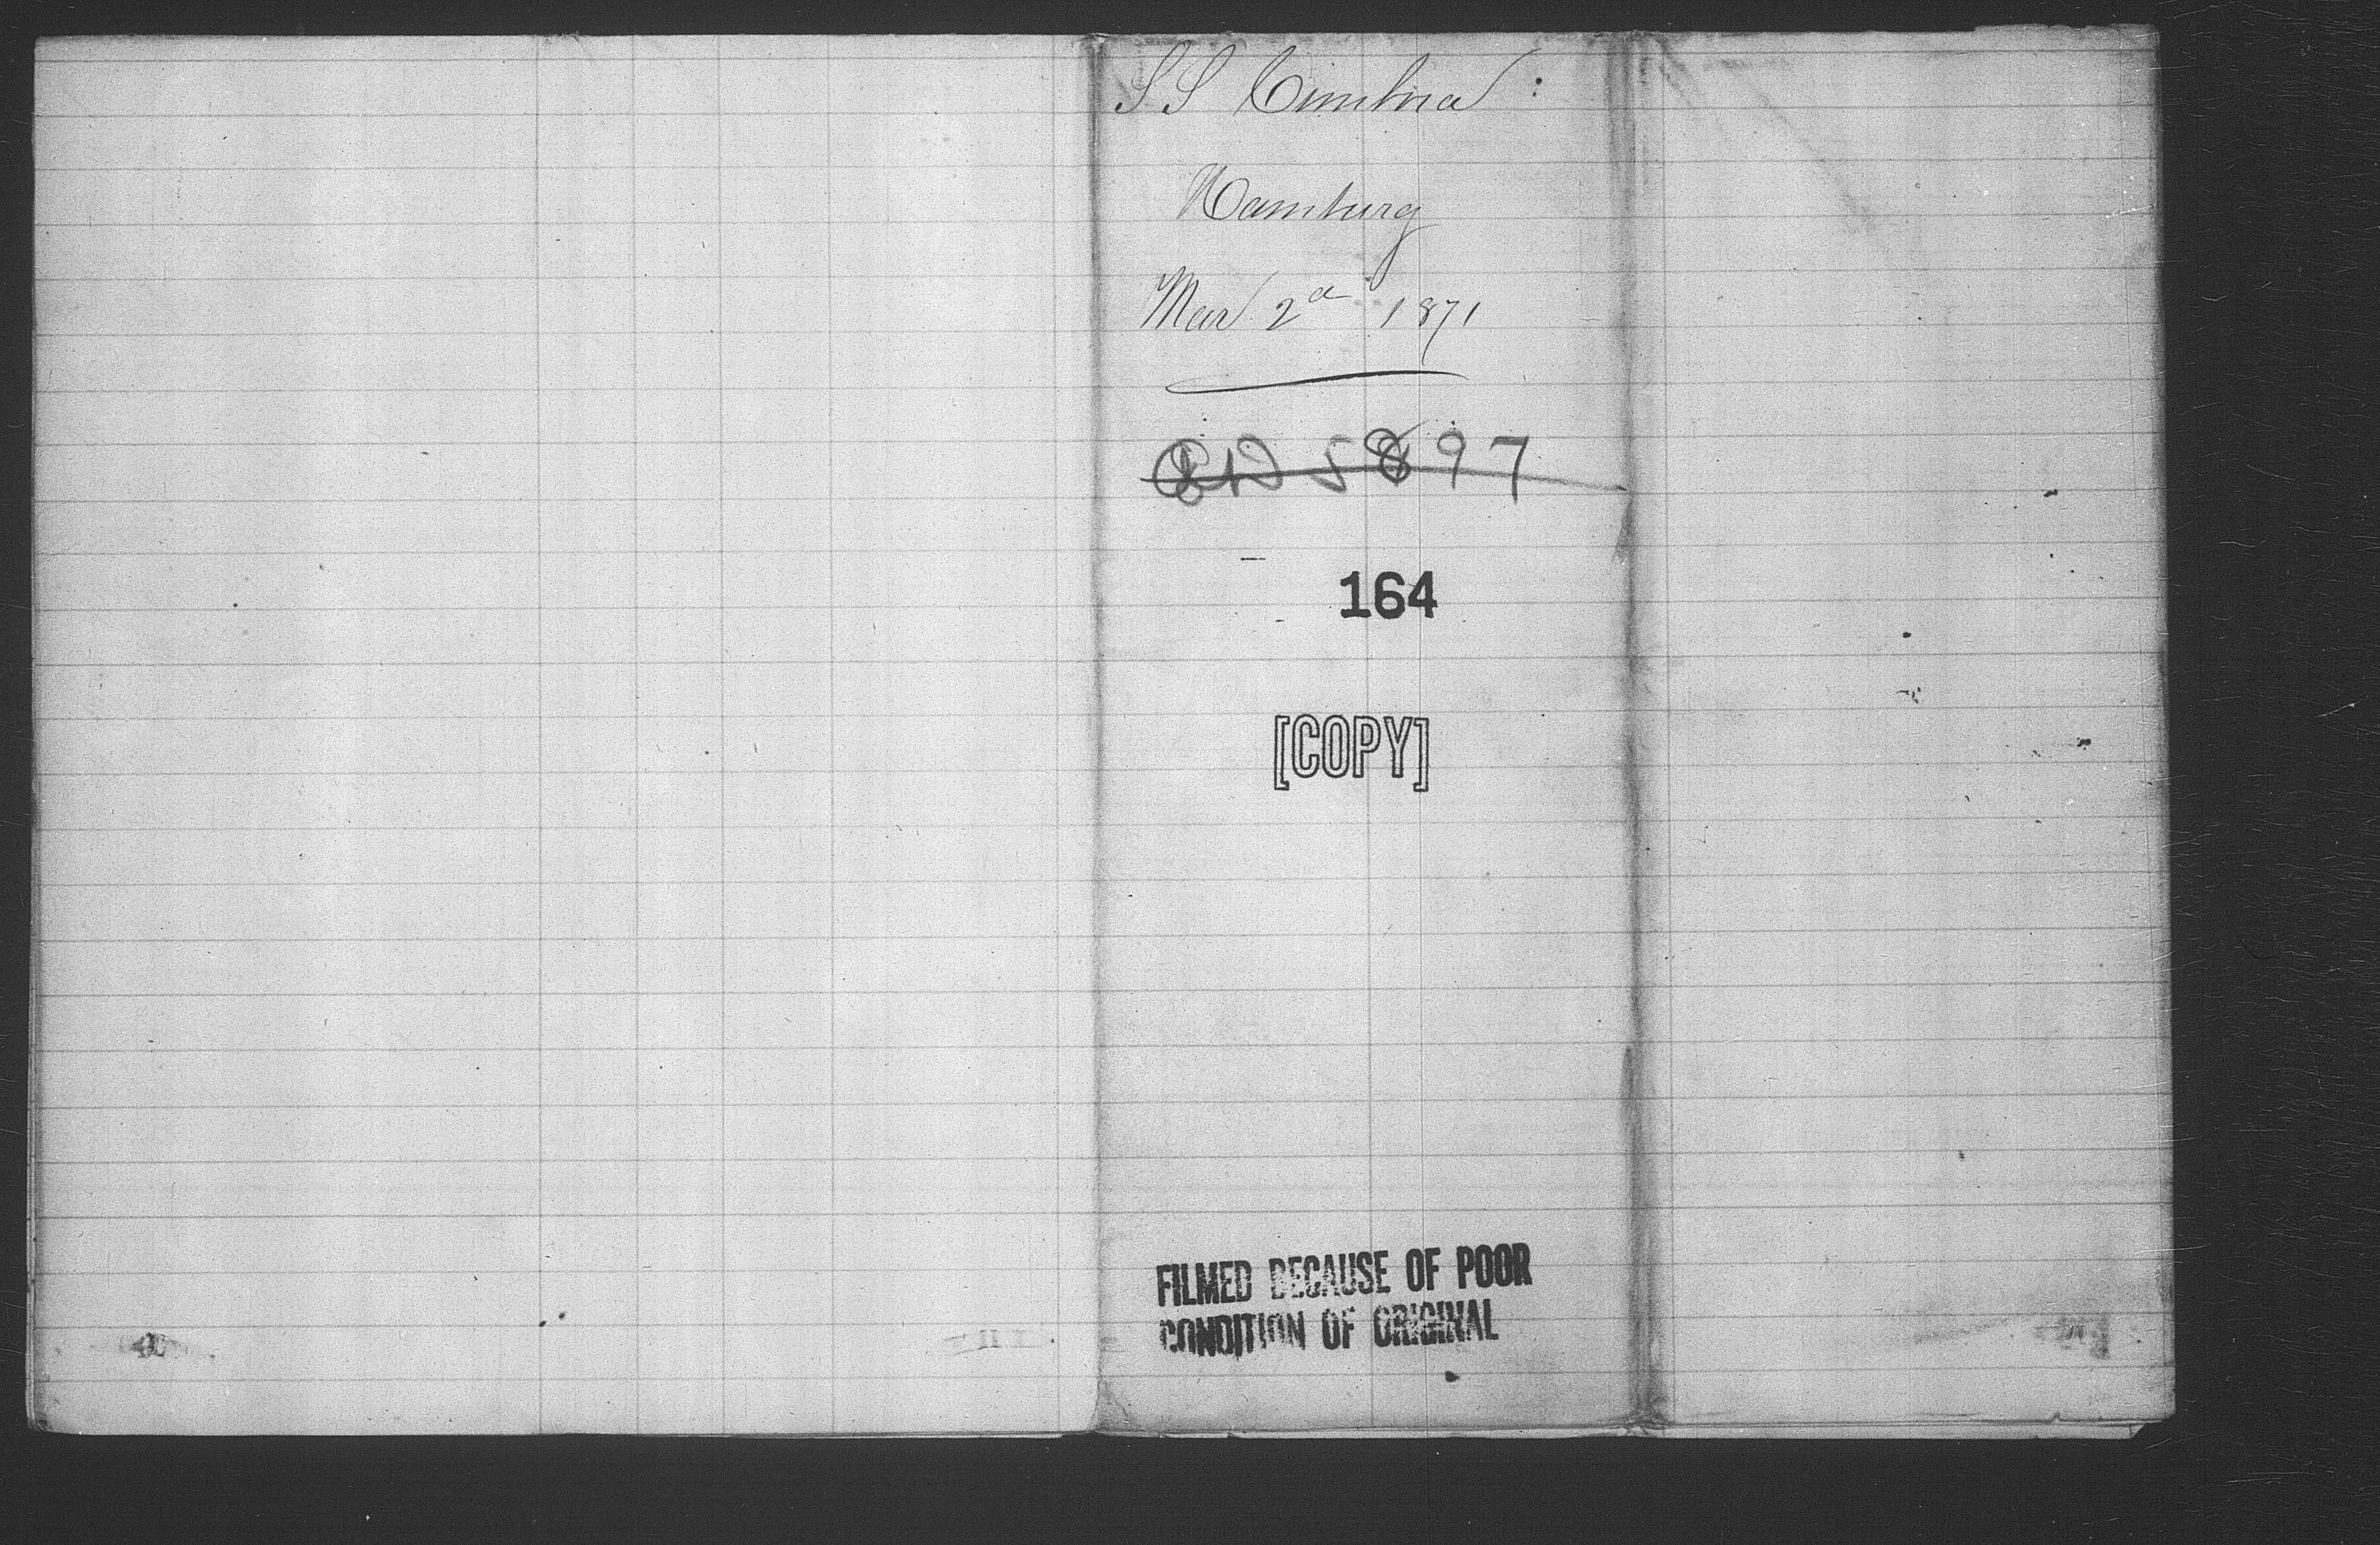 SS Cimbria:
Hamburg
Mar 2d 1871
5897
164
[COPY]
FILMED BECAUSE OF POOR
CONDITION OF ORIGINAL